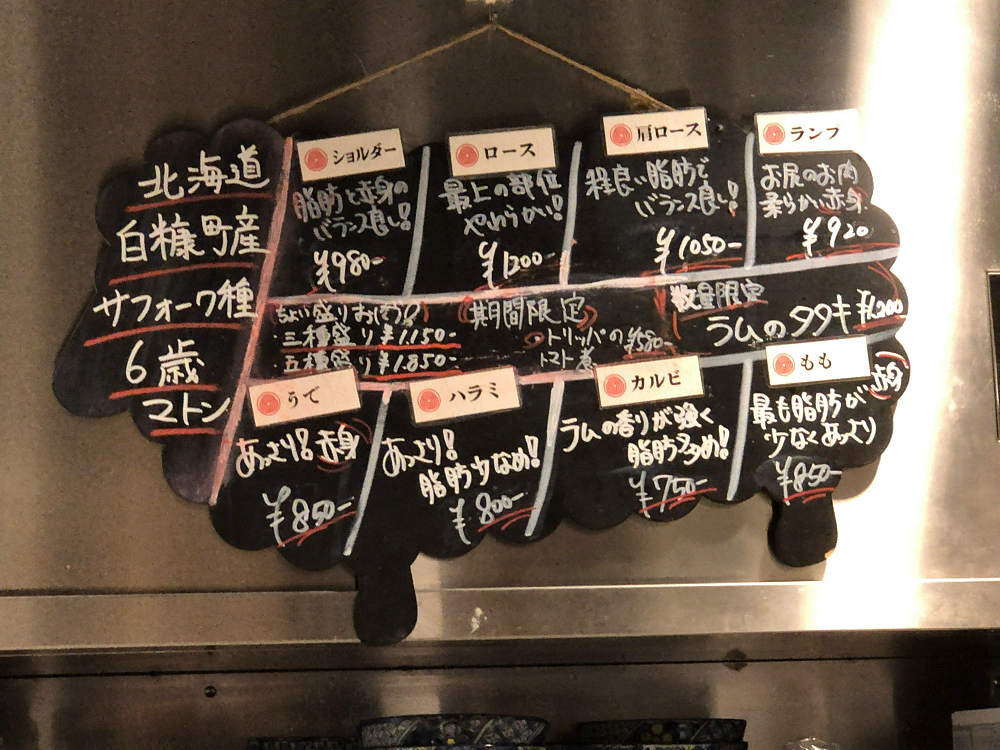 北海道
白糠町産
サフォーク種
6歳
マトン
ショルダー
脂肪と赤身の
バランス良し!
¥980-
ロース
最上の部位
やわらかい!
¥1200-
肩ロース
程良い脂肪で
バランス良し!
¥1050-
ランプ
お尻のお肉
柔らかい赤身
¥920
ちょい盛りおすすめ!!
・三種盛り ¥1.150-
・五種盛り ¥1.850-
期間限定
トリッパの
トマト煮
¥580-
数量限定
ラムのタタキ ¥1.200
うで
あっさり!赤身
¥850-
ハラミ
あっさり!
脂肪少なめ!
¥800-
カルビ
ラムの香りが強く
脂肪多め!
¥750-
もも
赤身
最も脂肪が
少なくあっさり
¥850-